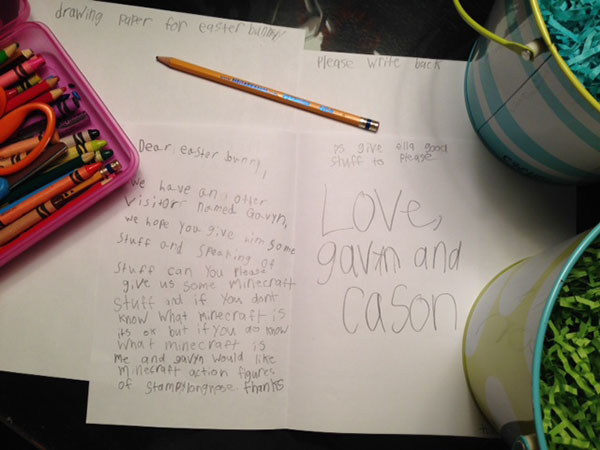 drawing paper for easter bunny!
please write back
Dear, easter bunny,
we have an, other
visitor named Gavyn,
we hope you give him some
stuff and speaking of
stuff can you please
give us some minecraft
stuff and if you dont
know what minecraft is
its ok but if you do know
what minecraft is
me and gavyn would like
minecraft action figures
of stampylongnose thanks
ps give ella good
stuff to please
Love,
gavyn and
cason